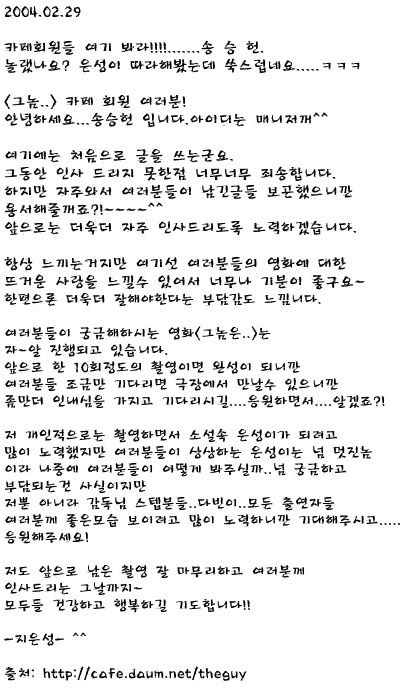 2004.02.29
카페회원들 여기 봐라!!!!.......송 승 헌.
놀랬나요? 은성이 따라해봤는데 쑥스럽네요.....ㅋㅋㅋ
<그놈..> 카페 회원 여러분!
안녕하세요...송승헌 입니다.아이디는 매니저꺼^^
여기에는 처음으로 글을 쓰는군요.
그동안 인사 드리지 못한점 너무너무 죄송합니다.
하지만 자주와서 여러분들이 남긴글들 보곤했으니깐
용서해줄꺼죠?!~~~~^^
앞으로는 더욱더 자주 인사드리도록 노력하겠습니다.
항상 느끼는거지만 여기선 여러분들의 영화에 대한
뜨거운 사랑을 느낄수 있어서 너무나 기분이 좋구요~
한편으론 더욱더 잘해야한다는 부담감도 느낍니다.
여러분들이 궁금해하시는 영화<그놈은..>는
자~알 진행되고 있습니다.
앞으로 한 10회정도의 촬영이면 완성이 되니깐
여러분들 조금만 기다리면 극장에서 만날수 있으니깐
좀만더 인내심을 가지고 기다리시길....응원하면서....알겠죠?!
저 개인적으로는 촬영하면서 소설속 은성이가 되려고
많이 노력했지만 여러분들이 상상하는 은성이는 넘 멋진놈
이라 나중에 여러분들이 어떻게 봐주실까..넘 궁금하고
부담되는건 사실이지만
저뿐 아니라 감독님 스텝분들..다빈이..모든 출연자들
여러분께 좋은모습 보이려고 많이 노력하니깐 기대해주시고.....
응원해주세요!
저도 앞으로 남은 촬영 잘 마무리하고 여러분께
인사드리는 그날까지~
모두들 건강하고 행복하길 기도합니다!!
-지은성- ^^
출처: http://cafe.daum.net/theguy